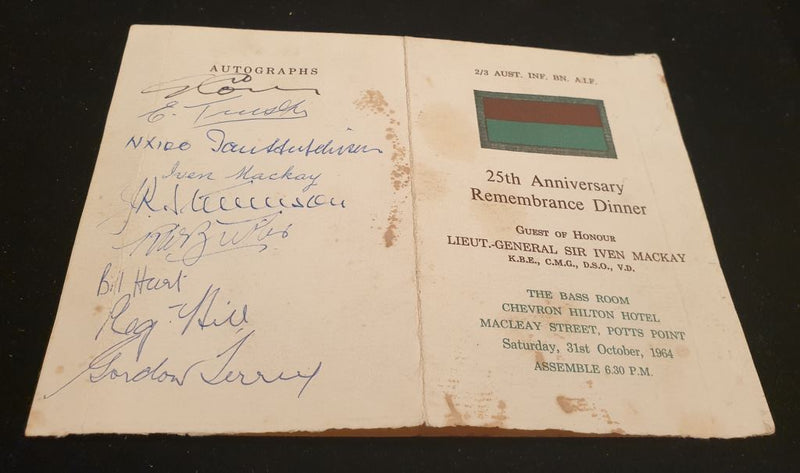 AUTOGRAPHS
E.
NX100 Ian Hutchison
Iven Mackay
Bill Hurt
Reg. Hill
Gordon
2/3 AUST. INF. BN. A.I.F.
25th Anniversary
Remembrance Dinner
GUEST OF HONOUR
LIEUT.-GENERAL SIR IVEN MACKAY
K.B.E., C.M.G., D.S.O., V.D.
THE BASS ROOM
CHEVRON HILTON HOTEL
MACLEAY STREET, POTTS POINT
Saturday, 31st October, 1964
ASSEMBLE 6.30 P.M.